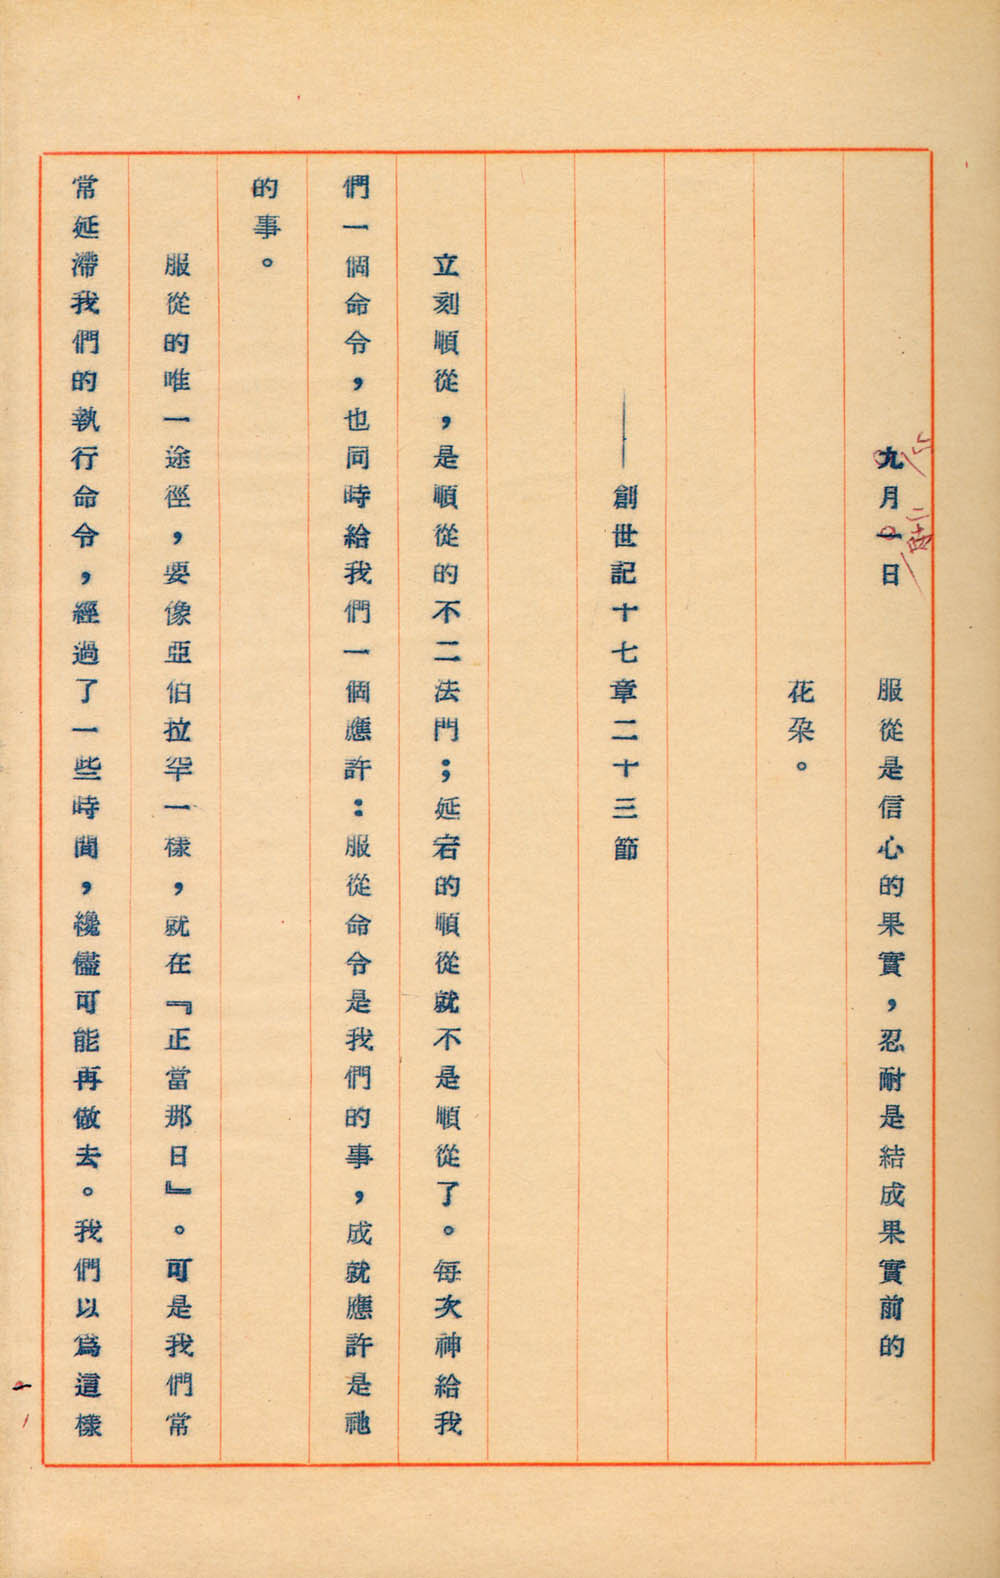 九月一日　　服從是信心的果實，忍耐是結成果實前的
六
二十四
花朶。
——創世記十七章二十三節
立刻順從，是順從的不二法門；延宕的順從就不是順從了。每次神給我
們一個命令，也同時給我們一個應許：服從命令是我們的事，成就應許是祂
的事。
服從的唯一途徑，要像亞伯拉罕一樣，就在『正當那日』。可是我們常
常延滯我們的執行命令，經過了一些時間，纔儘可能再做去。我們以爲這樣